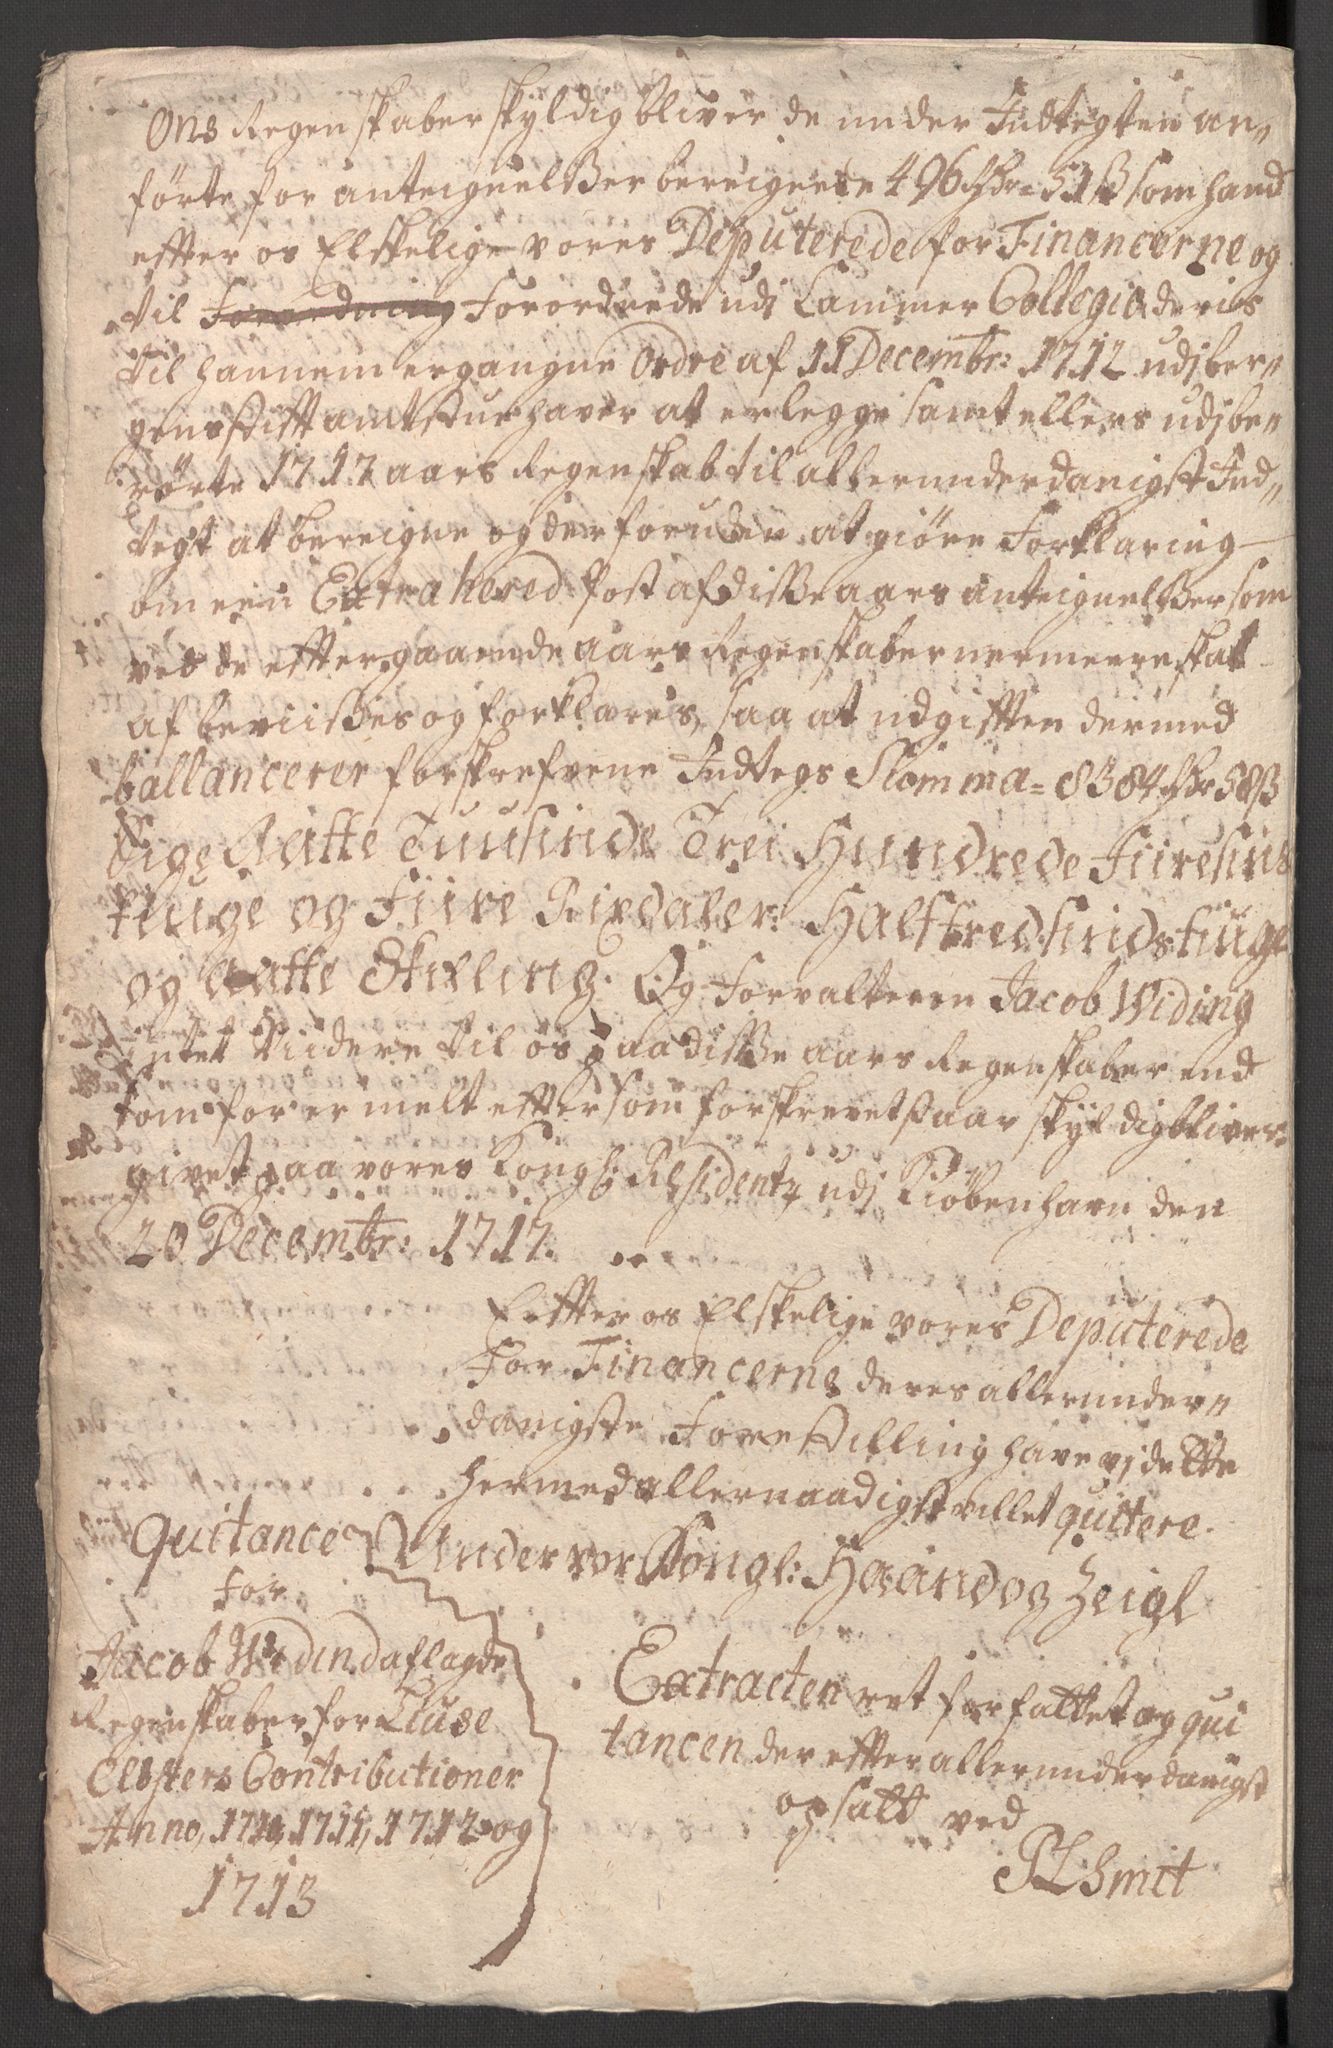 Ons Regenskaber skyldig bliver de under Indtegten an=
førte for anteignelsser bereignede 496 Rdr= 51 ß som hand
efter os Elskelige vores Deputerede for Financerne og
til Forordning Forordnede udj Cammer Collegio deris
til hannem ergangne Ordre af 11 Decembr: 1712 udj ber=
gens Stift amtstue haver at erlegge samt ellers udj be=
rørte 1717 aars Regenskab til allerunderdanigst Ind=
tegt at bereigne og der foruden at giøre Forklaring
om een Extrahered Post af disse aars anteignelsser som
ved de effter gaaende aars Regenskaber nermeere skal
af beviisses og forklares, saa at udgifften dermed
ballancerer forskrefvene Indtegs Summa= 8384 Rdr 58 ß
Sige Aatte Tuusinde Trei Hundrede Fiiresinds
tiuge og Fiire Rixdaler: Halftredsindstiuge
og Aatte Skilling. Og Forvalteren Jacob Widing
intet Viidere til os paa disse aars Regenskaber end
som for er melt effter som forskrevet staar skyldig bliver.
givet paa vores Kongl: Residentz udj Kiøbenhavn den
20 Decembr: 1717.
Effter os Elskelige vores Deputerede
For Financerne deres allerunder=
danigste Forestilling have vj dette
hermed allernaadigst villet quittere.
Under vor Kongl: Haand og Zeigl
Quitance
for
Jacob Widind aflagde
Regenskaber for Liuse
Closters Contributioner
Anno, 1710, 1711, 1712 og
1713
Extracten ret forfattet og qui
tancen der effter allerunderdanigst
opsatt ved
PL Smit